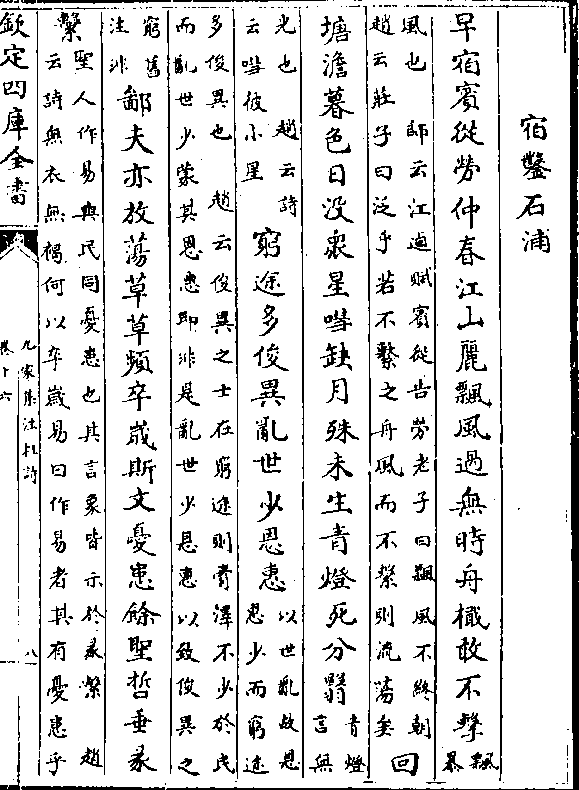 宿鑿石浦
早宿賓從勞仲春江山麗飄風過無時舟檝敢不繫飄暴
風也師云江逌賦賓從告勞老子曰飄風不終朝
趙云莊子曰泛乎若不繫之舟風而不繫則流蕩矣回
塘澹暮色日没衆星嘒缺月殊未生青燈死分翳青燈言無
光也趙云詩
云嘒彼小星窮途多俊異亂世少恩惠以世亂故恩惠少而窮途
多俊異也趙云俊異之士在窮途則膏澤不少於民
而亂世少蒙其恩惠即非是亂世少恩惠以致俊異之
窮舊
注非鄙夫亦放蕩草草頻卒歲斯文憂患餘聖哲垂彖
繫聖人作易與民同憂患也其言象皆示於彖繫趙
云詩無衣無褐何以卒歲易曰作易者其有憂患乎
欽定四庫全書
九家集注杜詩
卷十六
八